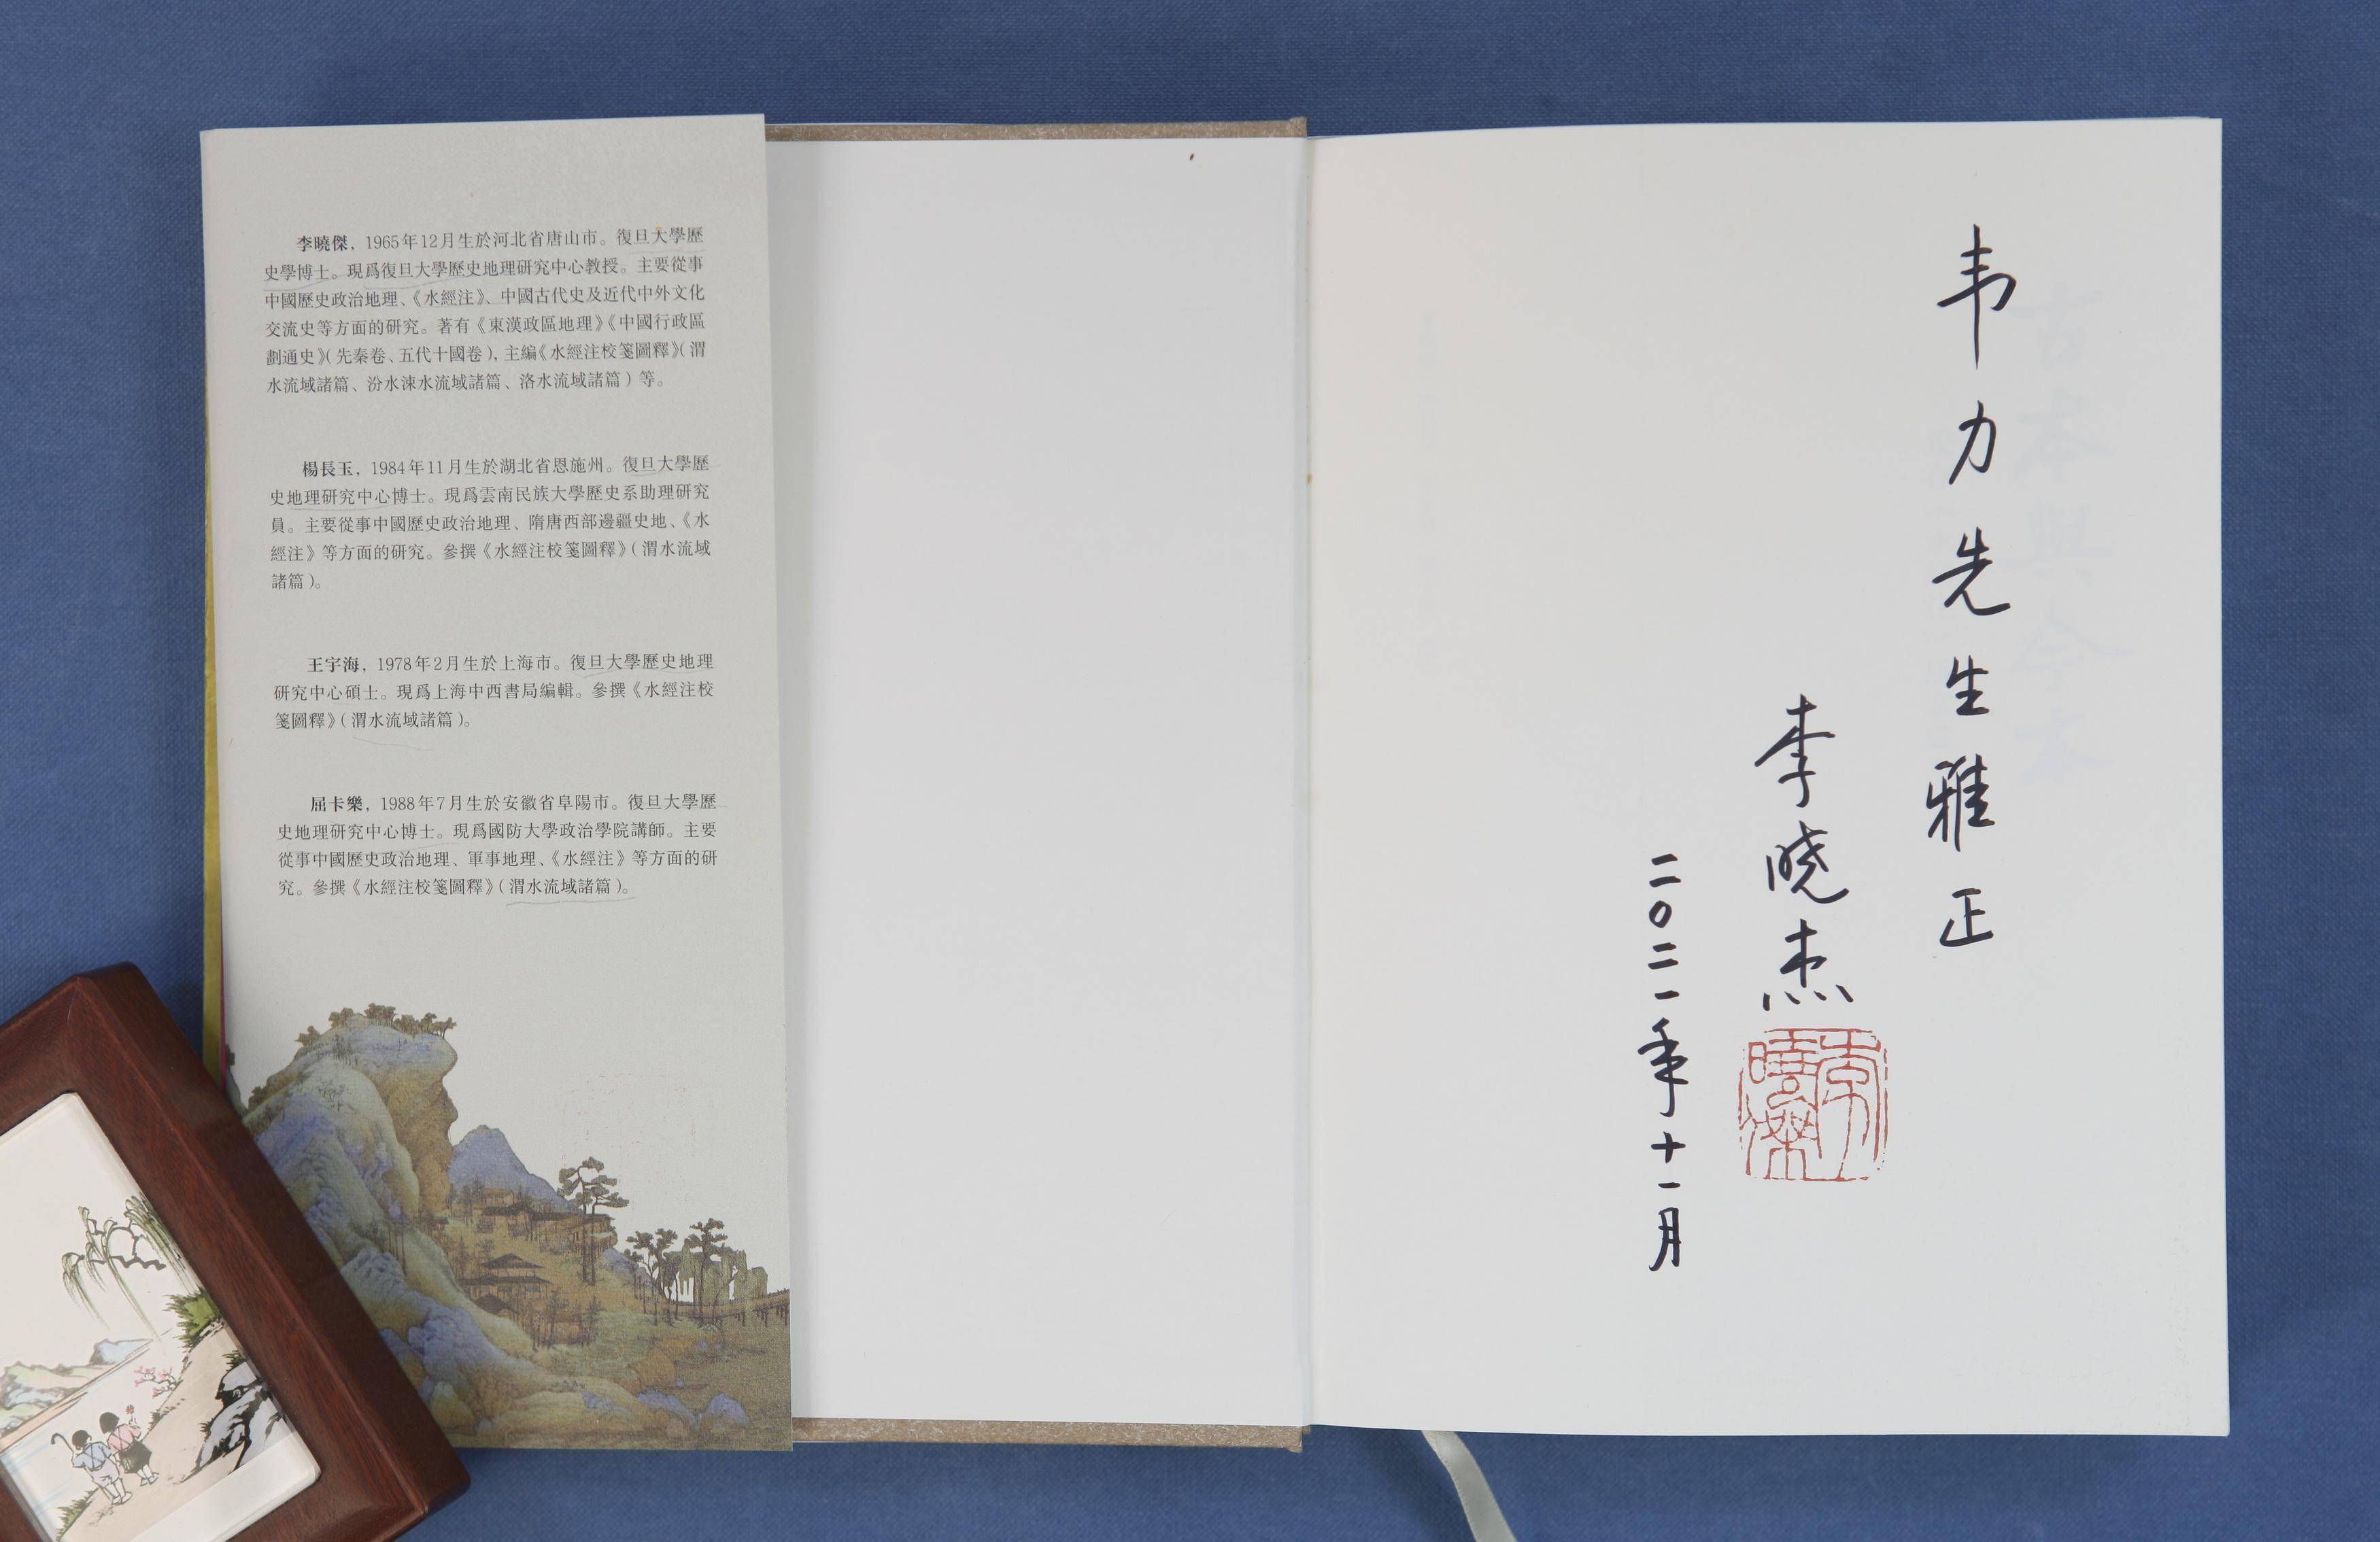 李曉傑，1965年12月生於河北省唐山市。復旦大學歷
史學博士。現爲復旦大學歷史地理研究中心教授。主要從事
中國歷史政治地理、《水經注》、中國古代史及近代中外文化
交流史等方面的研究。著有《東漢政區地理》《中國行政區
劃通史》（先秦卷、五代十國卷），主編《水經注校箋圖釋》（渭
水流域諸篇、汾水涑水流域諸篇、洛水流域諸篇）等。
楊長玉，1984年11月生於湖北省恩施州。復旦大學歷
史地理研究中心博士。現爲雲南民族大學歷史系助理研究
員。主要從事中國歷史政治地理、隋唐西部邊疆史地、《水
經注》等方面的研究。參撰《水經注校箋圖釋》（渭水流域
諸篇）。
王宇海，1978年2月生於上海市。復旦大學歷史地理
研究中心碩士。現爲上海中西書局編輯。參撰《水經注校
箋圖釋》（渭水流域諸篇）。
屈卡樂，1988年7月生於安徽省阜陽市。復旦大學歷
史地理研究中心博士。現爲國防大學政治學院講師。主要
從事中國歷史政治地理、軍事地理、《水經注》等方面的研
究。參撰《水經注校箋圖釋》（渭水流域諸篇）。
韦力先生雅正
李晓杰
二〇二一年十一月
李曉傑
古本與今本